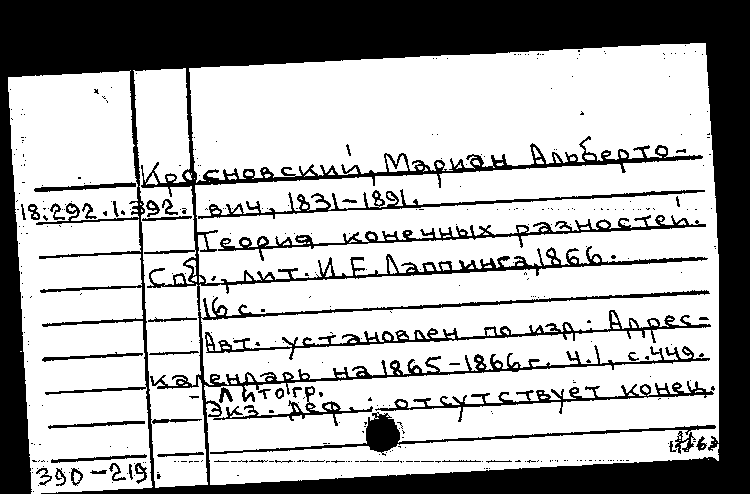 Красновский, Мариан Альберто-
18.292.1.392. вич, 1831-1891.
Теория конечных разностей.
Спб., лит. И.Е.Лаппинга, 1866.
16 с.
Авт. установлен по изд.: Адрес-
календарь на 1865-1866 г. ч.1, с.449.
- Литогр.
Экз. деф.: отсутствует конец.
390-219.